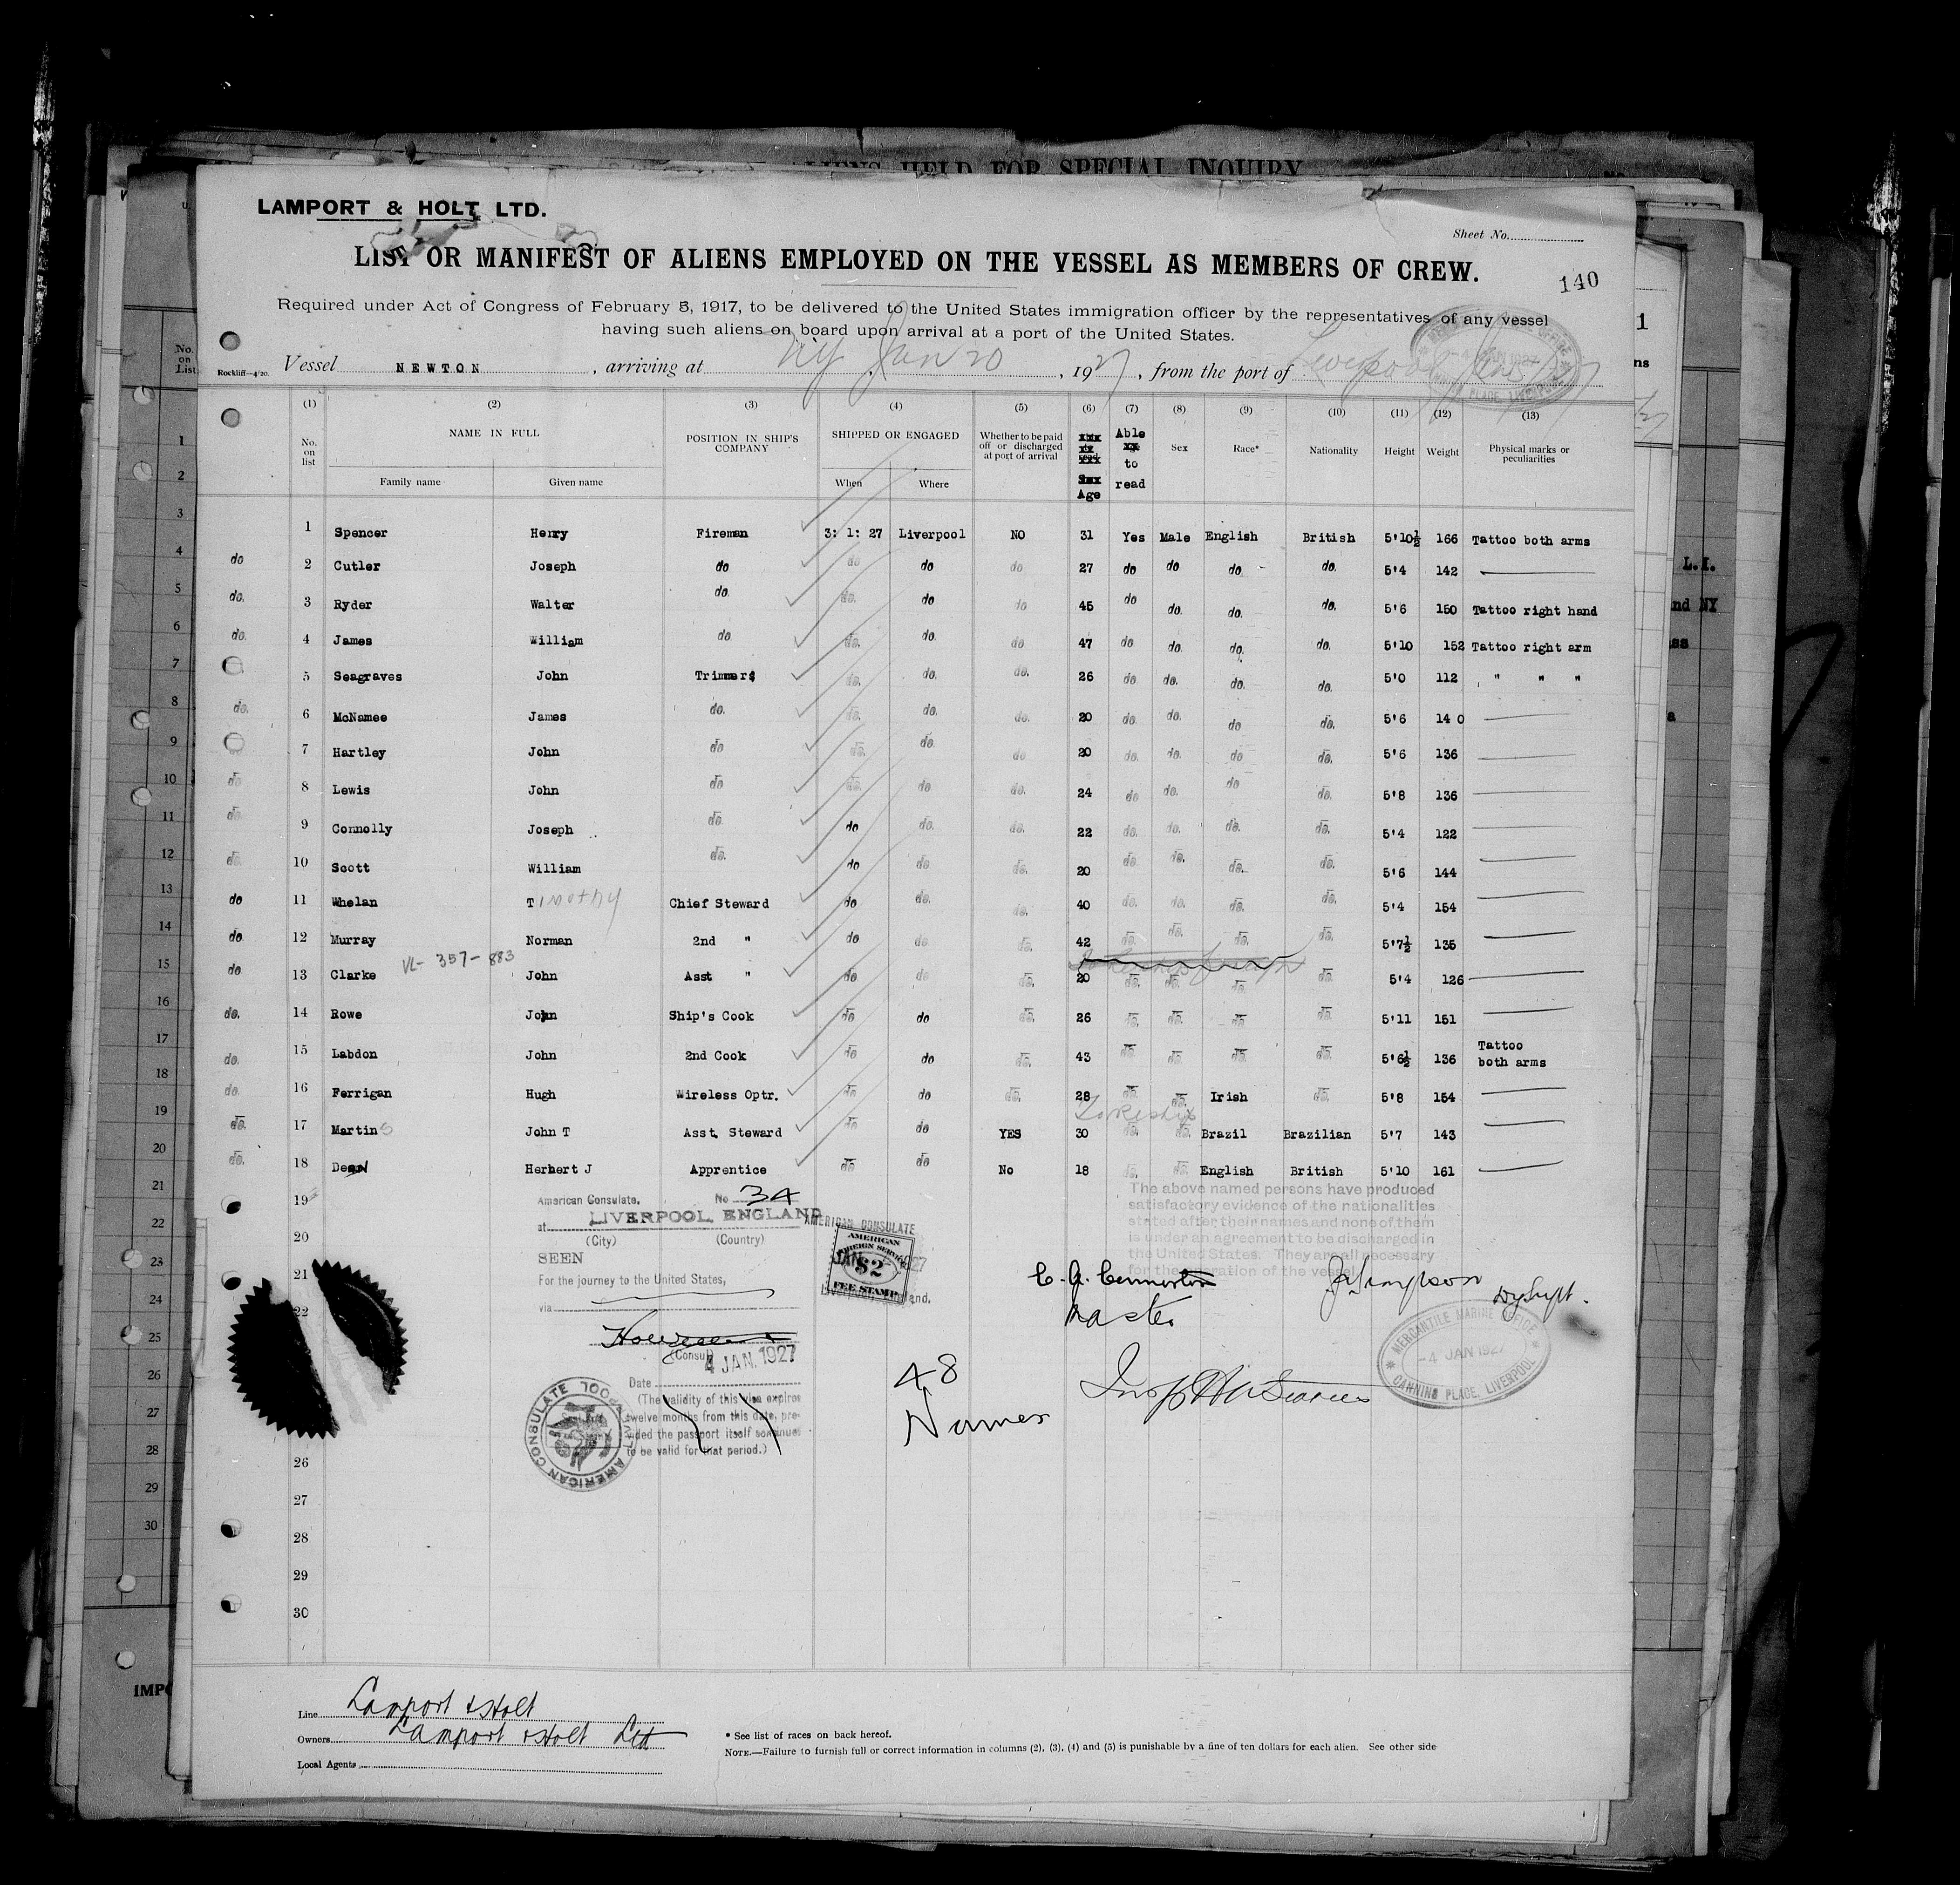 ALIENS HELD FOR SPECIAL INQUIRY
LAMPORT & HOLT LTD.
Sheet No.
LIST OR MANIFEST OF ALIENS EMPLOYED ON THE VESSEL AS MEMBERS OF CREW.
140
Required under Act of Congress of February 5, 1917, to be delivered to the United States immigration officer by the representatives of any vessel
having such aliens on board upon arrival at a port of the United States.
Rockliff—4'20. Vessel NEWTON , arriving at NY Jan 20 , 1927 , from the port of Liverpool
(1) (2) (3) (4) (5) (6) (7) (8) (9) (10) (11) (12) (13)
No. on list NAME IN FULL POSITION IN SHIP'S COMPANY SHIPPED OR ENGAGED Whether to be paid off or discharged at port of arrival Age Able to read Sex Race* Nationality Height Weight Physical marks or peculiarities
Family name Given name When Where
1 Spencer Henry Fireman 3: 1: 27 Liverpool NO 31 Yes Male English British 5'10½ 166 Tattoo both arms
do 2 Cutler Joseph do do do do 27 do do do do. 5'4 142
do. 3 Ryder Walter do. do. do do 45 do do. do. do. 5'6 150 Tattoo right hand
do. 4 James William do do. do. do 47 do do. do. do. 5'10 152 Tattoo right arm
5 Seagraves John Trimmers do. do. do. 26 do do. do. do. 5'0 112 " " "
do. 6 McNamee James do. do. do. do. 20 do. do. do do. 5'6 14 0
7 Hartley John do do. do. do 20 do. do. do do. 5'6 136
do 8 Lewis John do do. do do. 24 do do. do do. 5'8 136
do 9 Connolly Joseph do. do do. do. 22 do. do. do. do. 5'4 122
do. 10 Scott William do. do do. do. 20 do. do. do. do. 5'6 144
do 11 Whelan Timothy Chief Steward do do. do. 40 do. do. do. do. 5'4 154
do. 12 Murray Norman 2nd " do do. do. 42 do. do. do. do. 5'7½ 135
VL- 357- 883
do 13 Clarke John Asst " do do do. 20 do. do. do. do. 5'4 126
do. 14 Rowe John Ship's Cook do do do. 26 do. do. do do. 5'11 151
do. 15 Labdon John 2nd Cook do do do. 43 do do. do do. 5'6½ 136 Tattoo both arms
do. 16 Ferrigan Hugh Wireless Optr. do do do. 28 do. do. Irish do. 5'8 154
do. 17 Martins John T Asst. Steward do do YES 30 do. do. Brazil Brazilian 5'7 143
do. 18 Herbert J Apprentice do do No 18 do. do. English British 5'10 161
19
20
21
22
26
27
28
29
30
American Consulate. No 34
at LIVERPOOL, ENGLAND
(City) (Country)
SEEN
For the journey to the United States,
via
(Consul)
Date 4 JAN. 1927
(The validity of this visa expires
twelve months from this date, pro-
vided the passport itself continues
to be valid for that period.)
AMERICAN CONSULATE LIVERPOOL
AMERICAN CONSULATE
AMERICAN
FOREIGN SERVICE
$2
FEE STAMP
The above named persons have produced
satisfactory evidence of the nationalities
stated after their names and none of them
is under an agreement to be discharged in
the United States. They are all necessary
for the operation of the vessel
Master
J Simpson
Dy Supt.
MERCANTILE MARINE OFFICE
-4 JAN 1927
CANNING PLACE, LIVERPOOL
48
Names
Line Lamport & Holt
Owners Lamport & Holt Ltd
Local Agents
* See list of races on back hereof.
NOTE.—Failure to furnish full or correct information in columns (2), (3), (4) and (5) is punishable by a fine of ten dollars for each alien. See other side